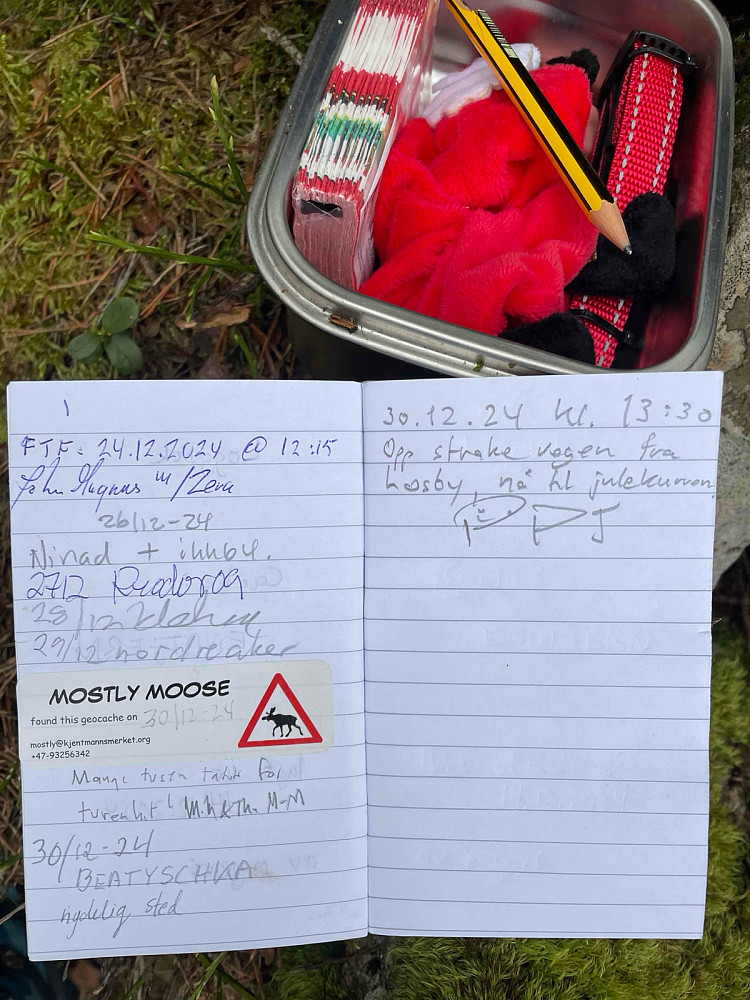 1
FTF: 24.12.2024 @ 12:15
John Magnus m/Zena
26/12-24
Ninad + ihhby.
2712
28/12
29/12 nordreaker
MOSTLY MOOSE
found this geocache on 30/12-24
mostly@kjentmannsmerket.org
+47-93256342
Mange tusen takk for
turen hit!
30/12-24
BEATYSCHKA
nydelig sted
30.12.24 kl. 13:30
Opp strake vegen fra
Løsby, nå til julekurven